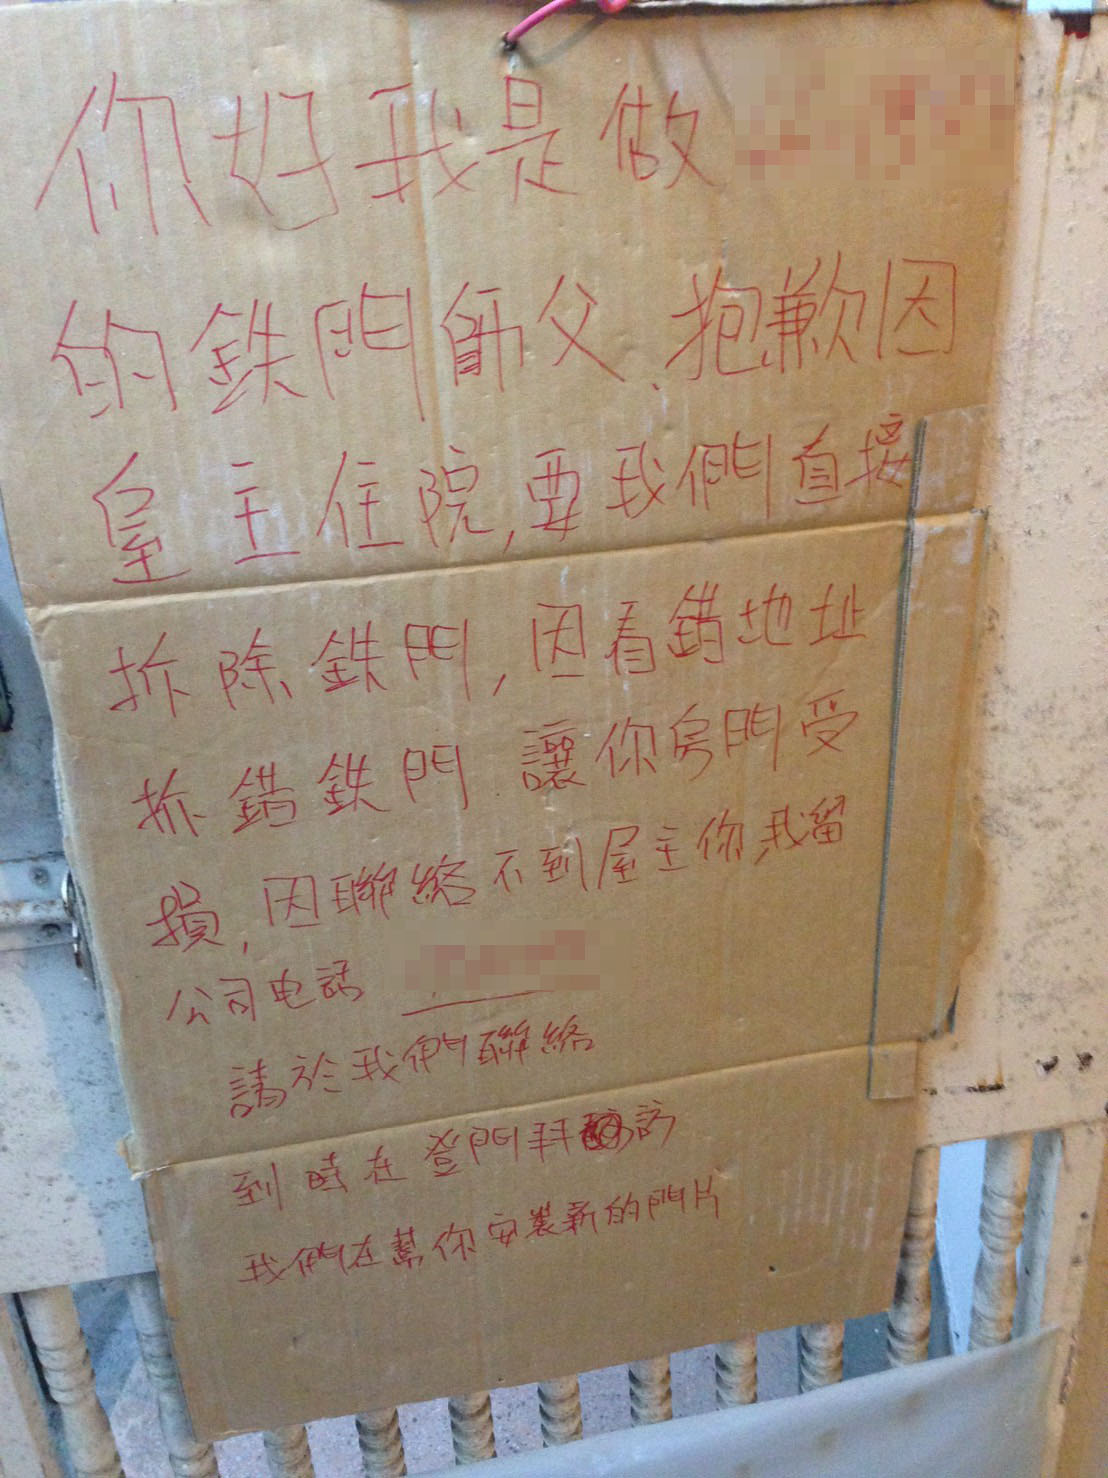 你好我是做
的鉄門師父、抱歉因
皇主住院,要我們直接
拆除鉄門,因看錯地址
拆錯鉄門 讓你房門受
損,因聯絡不到屋主你,我留
公司电話
請於我們聯絡
到時在登門拜訪
我們在幫你安裝新的門片